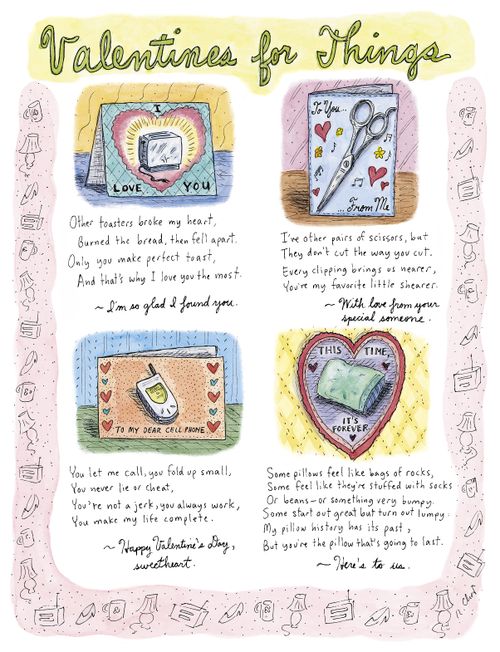 Valentines for Things
I
LOVE YOU
Other toasters broke my heart,
Burned the bread, then fell apart.
Only you make perfect toast,
And that's why I love you the most.
~ I'm so glad I found you.
To You...
...From Me
I've other pairs of scissors, but
They don't cut the way you cut.
Every clipping brings us nearer,
You're my favorite little shearer.
~ With love from your
special someone.
TO MY DEAR CELL PHONE
You let me call, you fold up small,
You never lie or cheat,
You're not a jerk, you always work,
You make my life complete.
~ Happy Valentine's Day,
sweetheart.
THIS TIME,
IT'S
FOREVER
Some pillows feel like bags of rocks,
Some feel like they're stuffed with socks
Or beans—or something very bumpy.
Some start out great but turn out lumpy:
My pillow history has its past,
But you're the pillow that's going to last.
~ Here's to us.
R. Chast